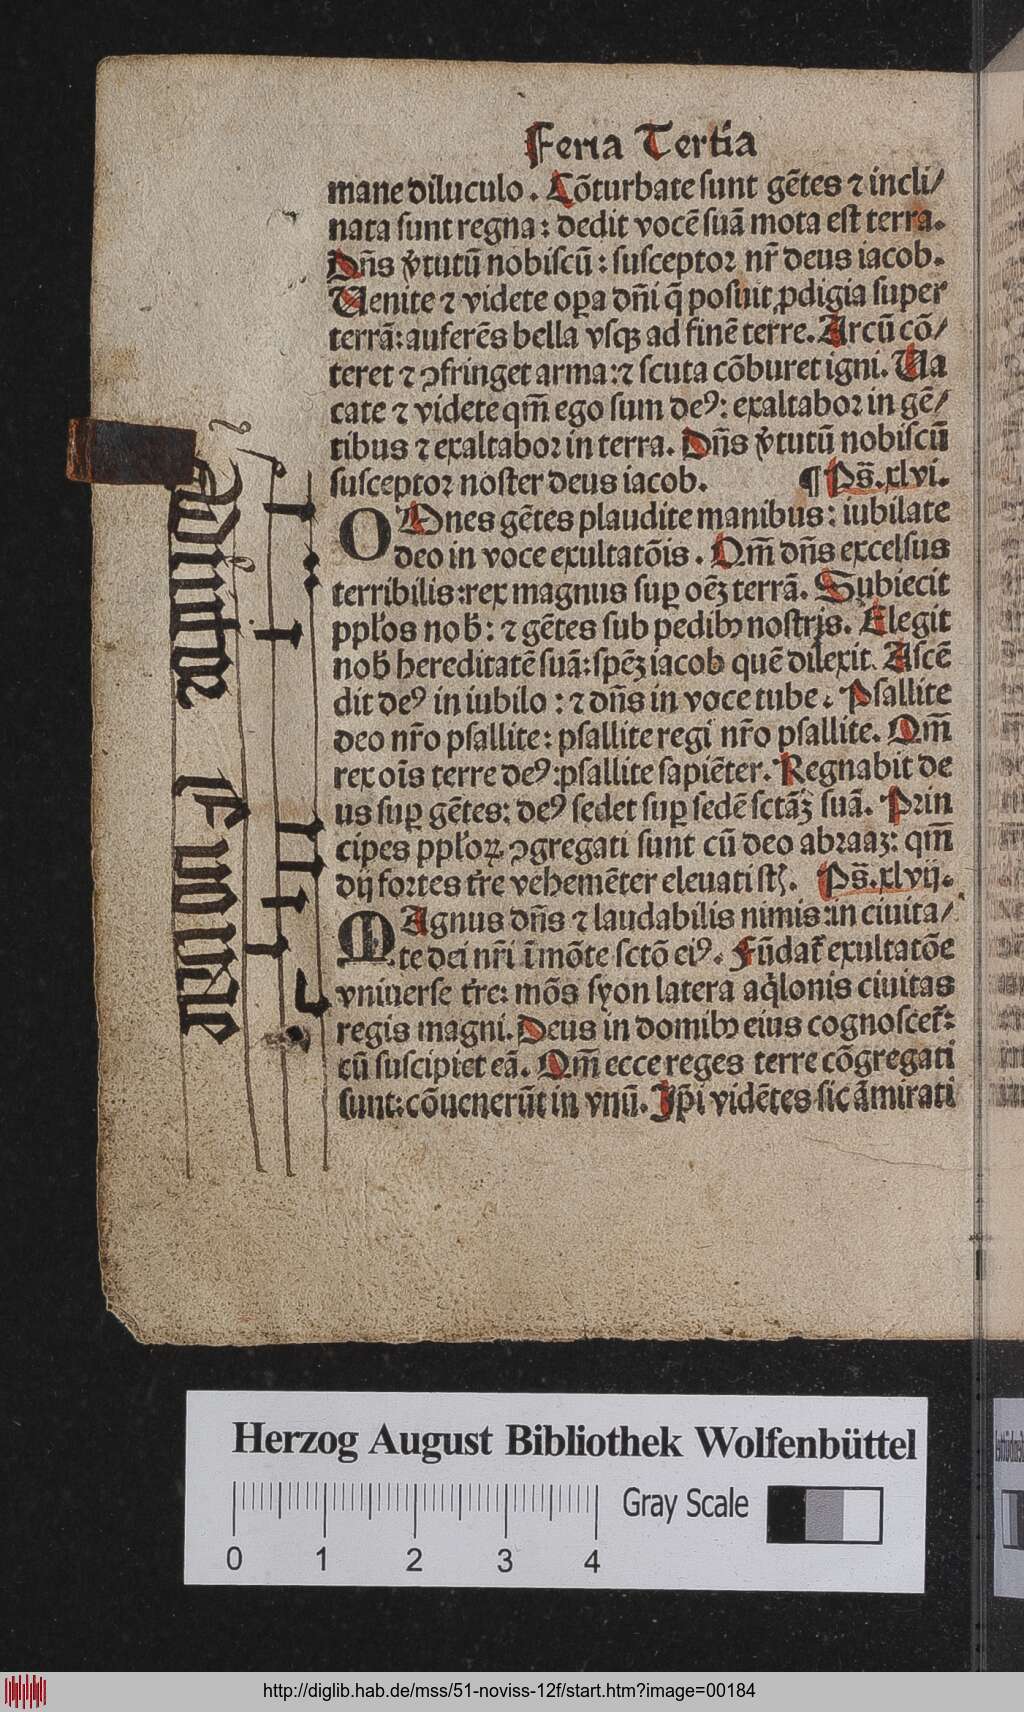 Feria Tertia
mane diluculo. Cōturbate sunt gētes ⁊ incli/
nata sunt regna: dedit vocē suā mota est terra.
Dn̄s v̓tutū nobiscū: susceptor nr̄ deus iacob.
Uenite ⁊ videte oꝑa dn̄i q̄ posuit ꝓdigia super
terrā: auferēs bella vsqꝫ ad finē terre. Arcū cō/
teret ⁊ ꝯfringet arma: ⁊ scuta cōburet igni. Ua
cate ⁊ videte qm̄ ego sum deꝰ: exaltabor in gē/
tibus ⁊ exaltabor in terra. Dn̄s v̓tutū nobiscū
susceptor noster deus iacob. ¶ Ps̄. xlvi.
OMnes gētes plaudite manibus: iubilate
deo in voce exultatōis. Qm̄ dn̄s excelsus
terribilis: rex magnus suꝑ oēꝫ terrā. Subiecit
ppl̓os nob̓: ⁊ gētes sub pedibꝰ nostris. Elegit
nob̓ hereditatē suā: spēꝫ iacob quē dilexit. Ascē
dit deꝰ in iubilo: ⁊ dn̄s in voce tube. Psallite
deo nr̄o psallite: psallite regi nr̄o psallite. Qm̄
rex oīs terre deꝰ: psallite sapiēter. Regnabit de
us suꝑ gētes: deꝰ sedet suꝑ sedē sctāꝫ suā. Prin
cipes ppl̓oꝝ ꝯgregati sunt cū deo abraaꝫ: qm̄
dij fortes tr̄e vehemēter eleuati st̄. Ps̄. xlvij.
MAgnus dn̄s ⁊ laudabilis nimis: in ciuita/
te dei nr̄i ī mōte sctō eiꝰ. Fūdat̄ exultatōe
vniuerse tr̄e: mōs syon latera aq̓lonis ciuitas
regis magni. Deus in domibꝰ eius cognoscet̄:
cū suscipiet eā. Qm̄ ecce reges terre cōgregati
sunt: cōuenerūt in vnū. Ip̄i vidētes sic āmirati
Herzog August Bibliothek Wolfenbüttel
Gray Scale
0 1 2 3 4
http://diglib.hab.de/mss/51-noviss-12f/start.htm?image=00184